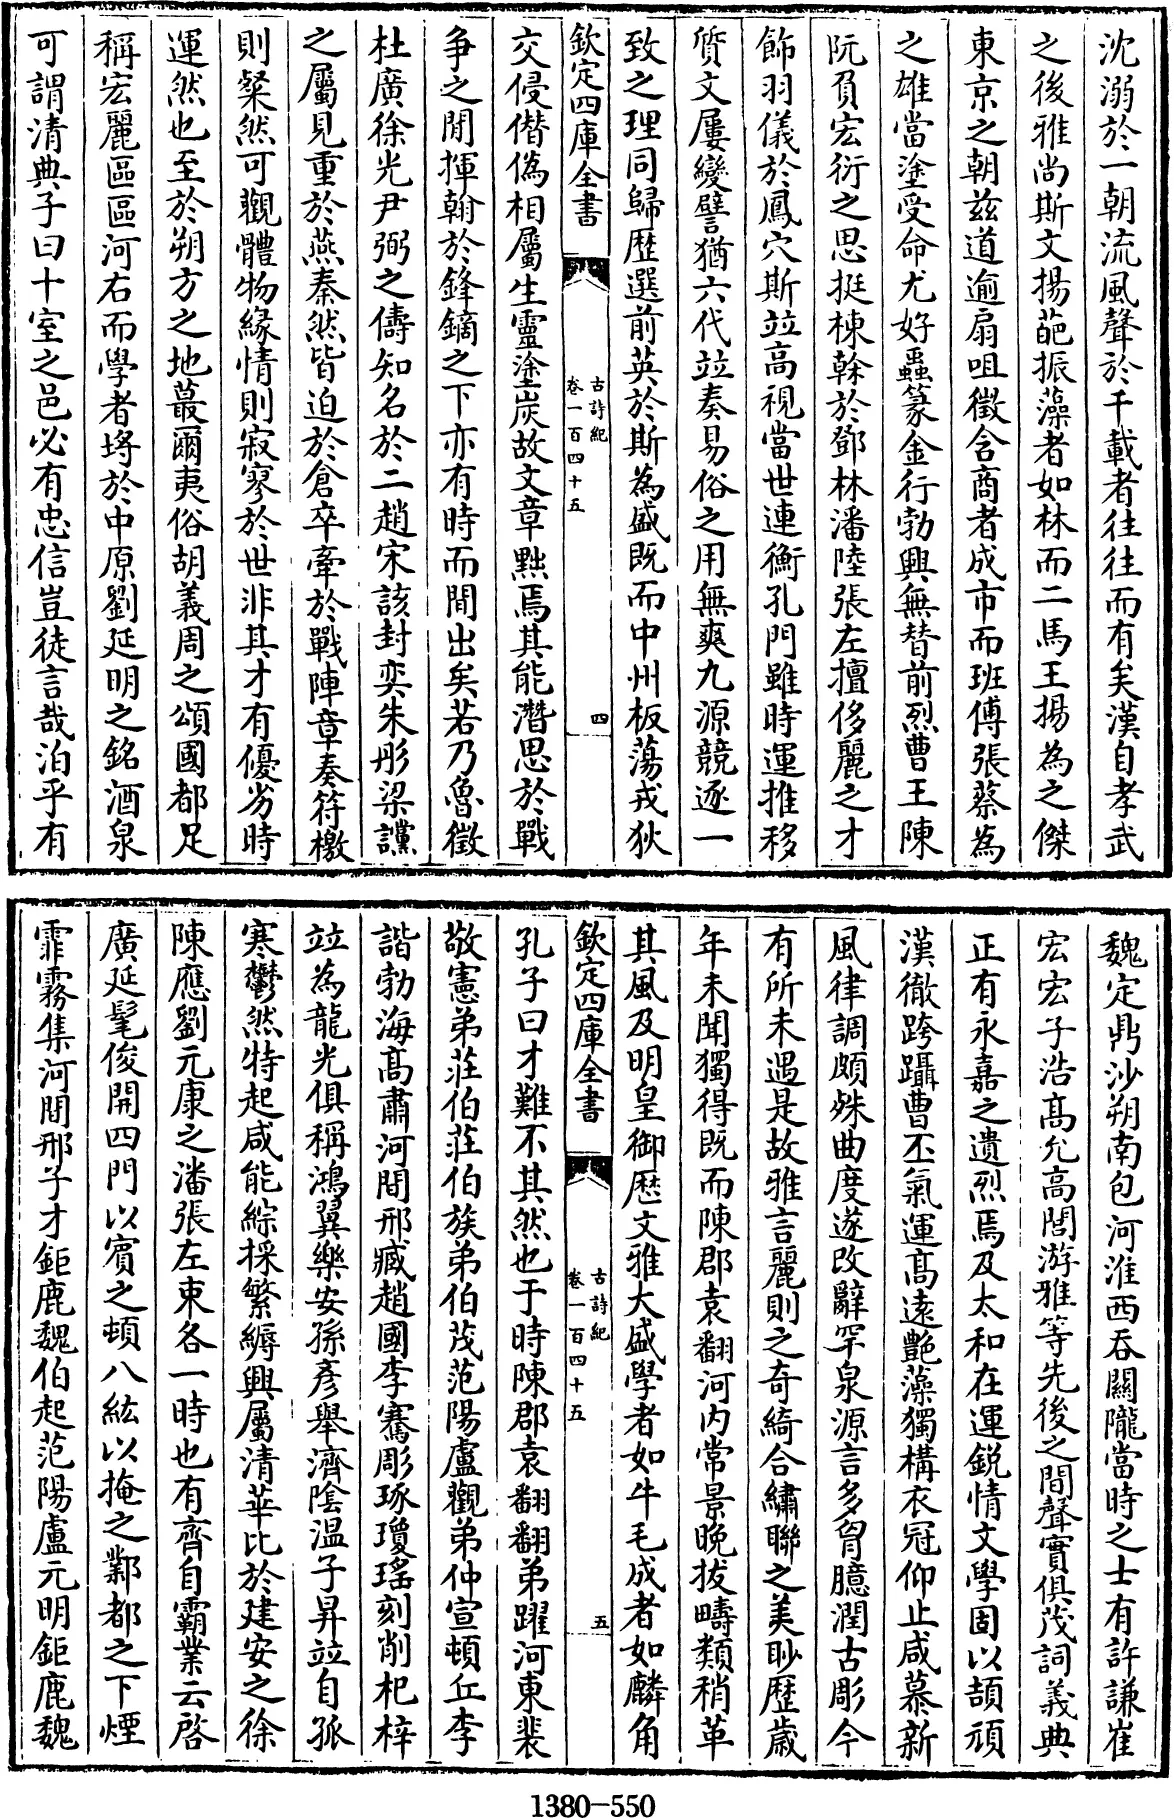 沈溺於一朝流風聲於千載者往往而有矣漢自孝武
之後雅尚斯文揚葩振藻者如林而二馬王揚為之傑
東京之朝兹道逾扇咀徵含商者成市而班傅張蔡為
之雄當塗受命尤好蟲篆金行勃興無替前烈曹王陳
阮負宏衍之思挺棟榦於鄧林潘陸張左擅侈麗之才
飾羽儀於鳳穴斯竝高視當世連衡孔門雖時運推移
質文屢變譬猶六代竝奏易俗之用無爽九源競逐一
致之理同歸歴選前英於斯為盛既而中州板蕩戎狄
欽定四庫全書
古詩紀
卷一百四十五
四
交侵僣偽相屬生靈塗炭故文章黜焉其能濳思於戰
争之閒揮翰於鋒鏑之下亦有時而閒出矣若乃魯徵
杜廣徐光尹弼之儔知名於二趙宋該封奕朱彤梁讜
之屬見重於燕秦然皆迫於倉卒牽於戰陣章奏符檄
則粲然可觀體物緣情則寂寥於世非其才有優劣時
運然也至於朔方之地蕞爾夷俗胡義周之頌國都足
稱宏麗區區河右而學者埒於中原劉延明之銘酒泉
可謂清典子曰十室之邑必有忠信豈徒言哉洎乎有
魏定鼎沙朔南包河淮西吞關隴當時之士有許謙崔
宏宏子浩高允高閭游雅等先後之間聲實俱茂詞義典
正有永嘉之遺烈焉及太和在運銳情文學固以頡頏
漢徹跨躡曹丕氣運高遠艶藻獨構衣冠仰止咸慕新
風律調頗殊曲度遂改辭罕泉源言多胷臆潤古彫今
有所未遇是故雅言麗則之奇綺合繡聯之美眇歴歲
年未聞獨得既而陳郡袁翻河内常景晚拔疇類稍革
其風及明皇御厯文雅大盛學者如牛毛成者如麟角
欽定四庫全書
古詩紀
卷一百四十五
五
孔子曰才難不其然也于時陳郡袁翻翻弟躍河東裴
敬憲弟莊伯莊伯族弟伯茂范陽盧觀弟仲宣頓丘李
諧勃海高肅河間邢臧趙國李騫彫琢瓊瑤刻削杞梓
竝為龍光俱稱鴻翼樂安孫彥舉濟陰温子昇竝自孤
寒鬱然特起咸能綜採繁縟興屬清華比於建安之徐
陳應劉元康之潘張左束各一時也有齊自霸業云啓
廣延髦俊開四門以賓之頓八紘以掩之鄴都之下煙
霏霧集河間邢子才鉅鹿魏伯起范陽盧元明鉅鹿魏
1380-550